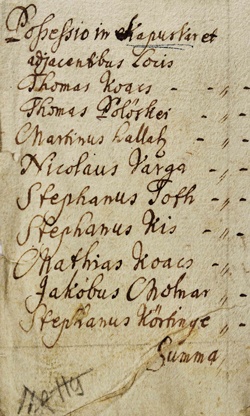 Possessio in Kapustiret
adjacentibus Locis
Thomas Koacs - - „ -
Thomas Polöskei - - „ -
Martinus Lallah - - „ -
Nicolaus Varga - - „ -
Stephanus Toth - - „ -
Stephanus Kis - - „ -
Mathias Koacs - - „ -
Jakobus Molnar - „ -
Stephanus Körtinge - „ -
Summa